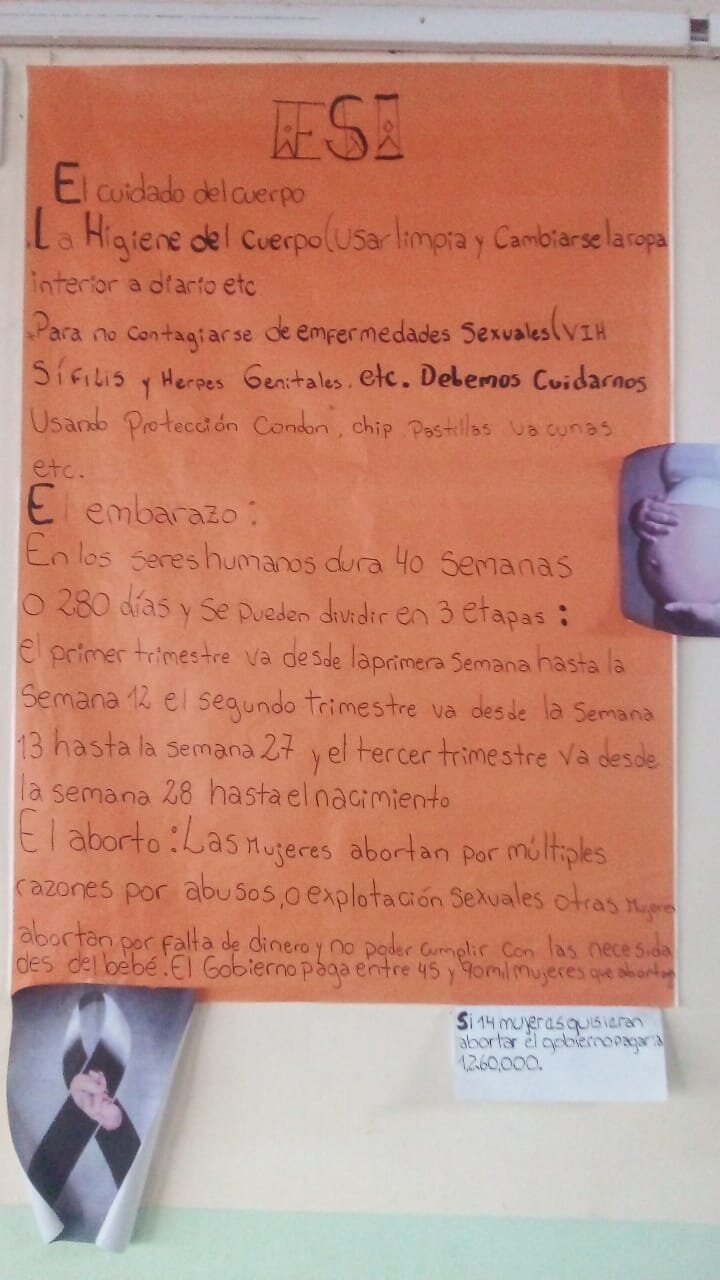 ESI
El cuidado del cuerpo
.La Higiene del cuerpo(Usar limpia y Cambiarse la ropa
interior a diario etc
.Para no contagiarse de emfermedades Sexuales(VIH
Sífilis y Herpes Genitales. etc. Debemos Cuidarnos
Usando Protección Condon, chip, Pastillas vacunas
etc.
El embarazo:
En los seres humanos dura 40 semanas
o 280 días y se pueden dividir en 3 etapas:
el primer trimestre va desde la primera semana hasta la
semana 12 el segundo trimestre va desde la semana
13 hasta la semana 27 y el tercer trimestre va desde
la semana 28 hasta el nacimiento
El aborto: Las Mujeres abortan por múltiples
razones por abusos, o explotación sexuales otras Mujeres
abortan por falta de dinero y no poder cumplir con las necesida
des del bebé. El Gobierno paga entre 45 y 90 mil mujeres que abortan
Si 14 mujeres quisieran
abortar el gobierno pagaria
1,260,000.